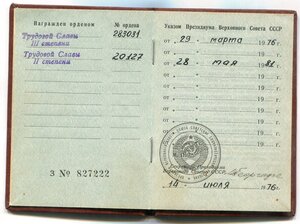 Награжден орденом
№ ордена
Трудовой Славы
III степени
283031
Трудовой Славы
II степени
20127
З № 827222
Указом Президиума Верховного Совета СССР
от 29 марта 1976 г.
от 28 мая 1981 г.
от 19 г.
от 19 г.
от 19 г.
от 19 г.
от 19 г.
от 19 г.
Президиума
Верховного Совета СССР
14 июля 1976 г.